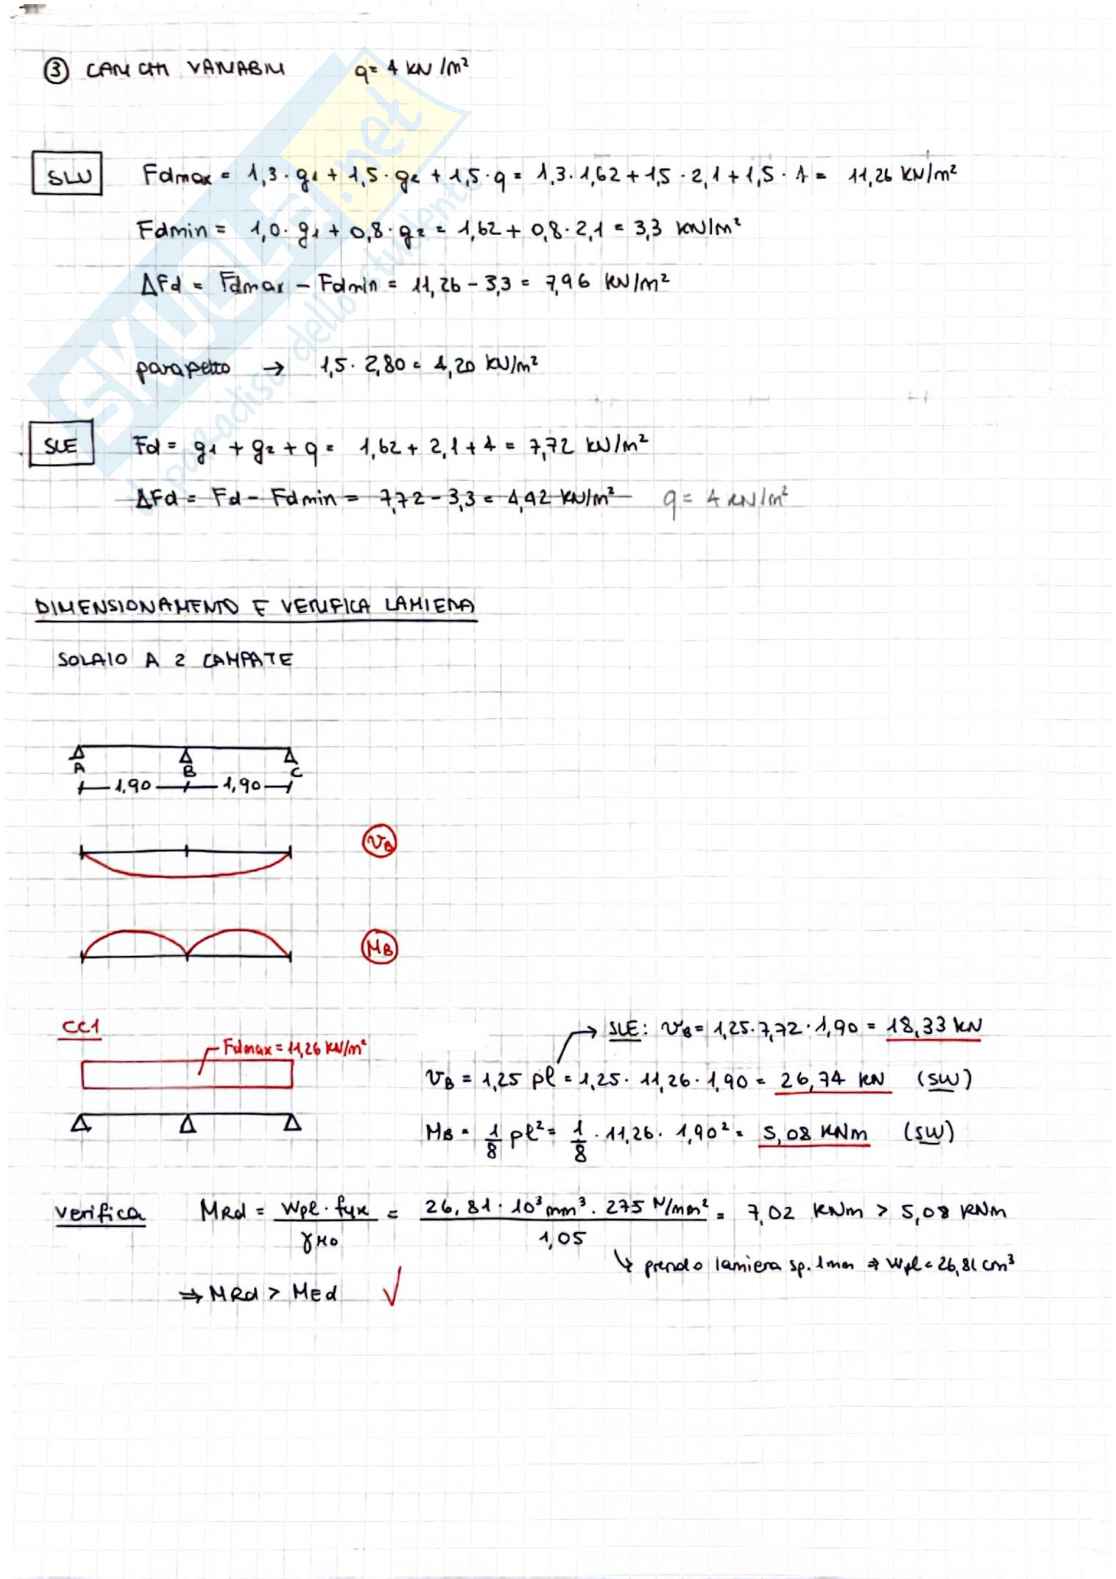 ③ CARICHI VARIABILI q= 4 KN/m²
SLU Fdmax = 1,3 · g1 + 1,5 · g2 + 1,5 · q = 1,3 · 1,62 + 1,5 · 2,1 + 1,5 · 4 = 11,26 KN/m²
Fdmin = 1,0 · g1 + 0,8 · g2 = 1,62 + 0,8 · 2,1 = 3,3 KN/m²
ΔFd = Fdmax − Fdmin = 11,26 − 3,3 = 7,96 KN/m²
parapetto → 1,5 · 2,80 = 4,20 KN/m²
SLE Fd = g1 + g2 + q = 1,62 + 2,1 + 4 = 7,72 KN/m²
ΔFd = Fd − Fdmin = 7,72 − 3,3 = 4,42 KN/m² q = 4 KN/m²
DIMENSIONAMENTO E VERIFICA LAMIERA
SOLAIO A 2 CAMPATE
A B C
1,90 1,90
VB
MB
CC1
Fdmax = 11,26 KN/m²
→ SLE: VB = 1,25 · 7,72 · 1,90 = 18,33 KN
VB = 1,25 pl = 1,25 · 11,26 · 1,90 = 26,74 KN (SLU)
MB = 1/8 pl² = 1/8 · 11,26 · 1,90² = 5,08 KNm (SLU)
verifica MRd = Wpl · fyk / γM0 = 26,81 · 10³ mm³ · 275 N/mm² / 1,05 = 7,02 KNm > 5,08 KNm
↳ prendo lamiera sp. 1mm ⇒ Wpl = 26,81 cm³
⇒ MRd > MEd ✓
SKUOLA.net
paradiso dello studente